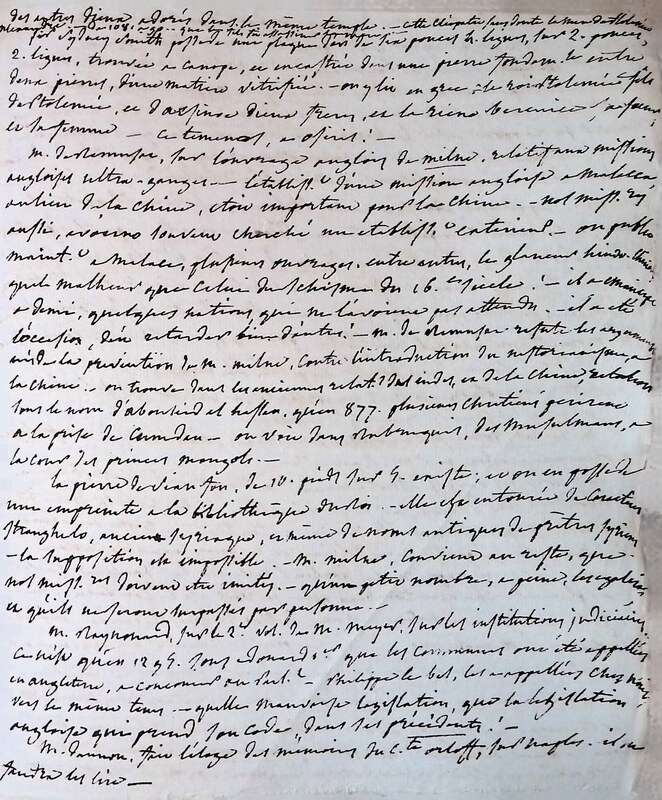 des autres dieux adorés dans le même temple. — cette Cléopatre
Sydney Smith possede une plaque d'or de six pouces 4. lignes, sur 2. pouces,
2. lignes, trouvée a Canope, et encastrée dans une pierre fondam.le entre
deux pierres, d'une matiere vitrifiée. — on y lit en grec : le roi ptolemée fils
de ptolemée, et d'arsinoe dieux freres, et la reine berenice, sa soeur,
et sa femme — ce temenos, a osiris ! —
m. de remusat, sur l'ouvrage anglois de milne, relatif aux missions
angloises ultra-ganges — l'établiss.t d'une mission angloise a Malacca
au lieu de la Chine, étoit important pour la Chine. — nos miss.res
aussi, avoient souvent cherché un etabliss.t exterieur. — on publie
maint.t a Malaca, plusieurs ouvrages, entre autres, le glaneur hindo-chinois
quel malheur que celui du schisme du 16.e siecle ! — il a émancipé
a demi, quelques nations qui ne l'avoient pas attendu. — il a été
l'occasion, d'en retarder bien d'autres ! — m. de remusat refute les argumens
de la prevention de m. milne, contre l'introduction du nestorianisme, a
la chine. — on trouve dans les anciennes relat.s des indes, et de la Chine, relation
sous le nom d'abouzeid el hassen, qu'en 877. plusieurs Chretiens perirent
a la prise de Cumdan — on voit dans rubruquis, des Musulmans, a
la cour des princes mongols. —
la pierre de sian fou, de 10. pieds sur 5. existe, et on en possede
une empreinte a la bibliothèque du roi. — elle est entourée de caracteres
stranghelo, ancien syriaque, et même de noms antiques de prêtres syriens
— la supposition est impossible. — M. milne, convient au reste, que
nos miss.res doivent etre imités. — qu'un petit nombre, a peine, les égalera
et qu'ils ne seront surpassés par personne. —
M. Raynouard, sur le 2.e vol. de M. Meyer, sur les institutions judiciaires
qu'en 1295. sous edouard 1.er que les communes ont été appellées
en angleterre, a concourir au parl.t — Philippe le bel, les a appellées chez nous
vers le même tems. — quelle mauvaise legislation, que la legislation
angloise qui prend son code, dans ses précédents ! —
M. daunou, fait l'éloge des mémoires du c.te orloff, sur naples. il
faudra les lire —